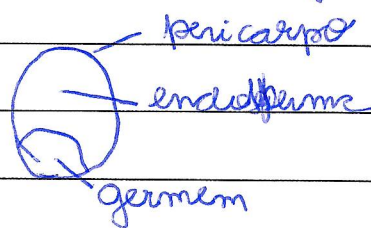 pericarpo
endosperma
germem